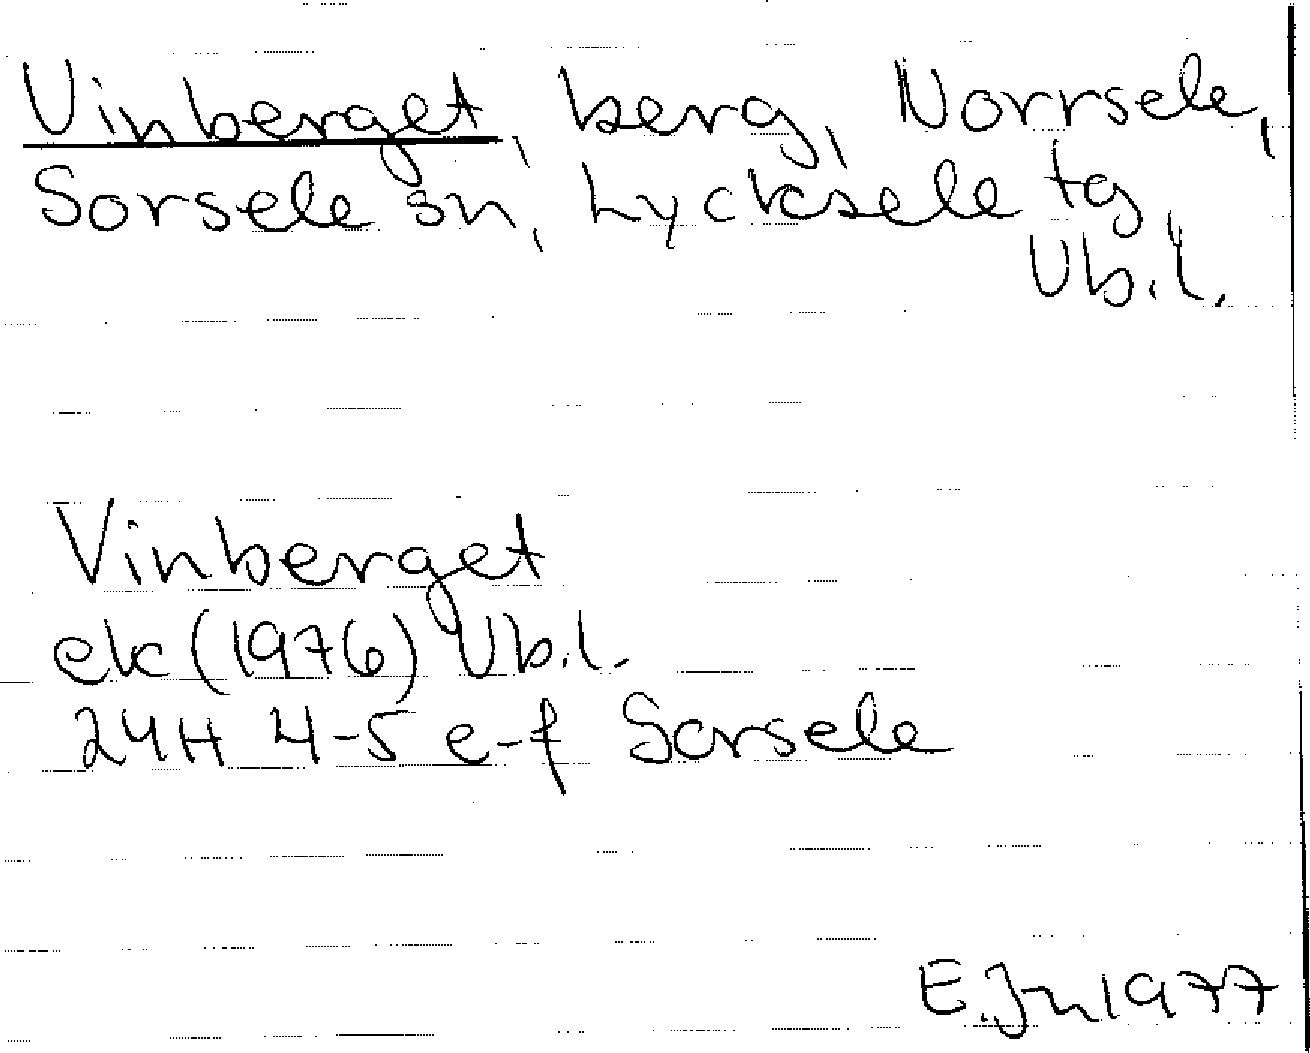 Vinberget, berg, Norrsele,
Sorsele sn, Lycksele tg,
Vb.l.
Vinberget
ek (1976) Vb.l.
24H 4-5 e-f Sorsele
E.Jn 1977